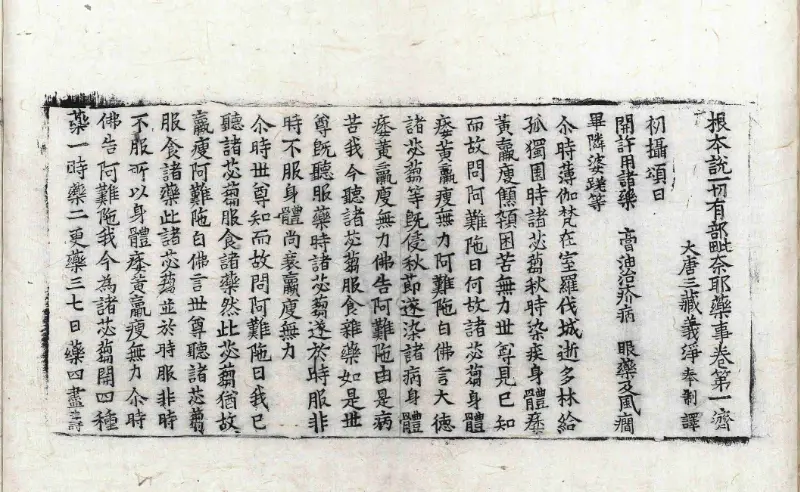 根本說一切有部毗奈耶藥事卷第一 濟
大唐三藏義淨奉 制譯
初攝頌曰
開許用諸藥 膏油治疥病 眼藥及風癎
畢隣婆蹉等
尒時薄伽梵在室羅伐城逝多林給
孤獨園時諸苾蒭秋時染疾身體痿
黃羸瘦顦顇困苦無力世尊見已知
而故問阿難陁曰何故諸苾蒭身體
痿黃羸瘦無力阿難陁白佛言大德
諸苾蒭等旣侵秋節遂染諸病身體
痿黃羸瘦無力佛告阿難陁由是病
苦我今聽諸苾蒭服食雜藥如是世
尊旣聽服藥時諸苾蒭遂於時服非
時不服身體尚衰羸瘦無力
尒時世尊知而故問阿難陁曰我已
聽諸苾蒭服食諸藥然此苾蒭猶故
羸瘦阿難陁白佛言世尊聽諸苾蒭
服食諸藥此諸苾蒭並於時服非時
不服所以身體痿黃羸瘦無力尒時
佛告阿難陁我今為諸苾蒭開四種
藥一時藥二更藥三七日藥四盡壽